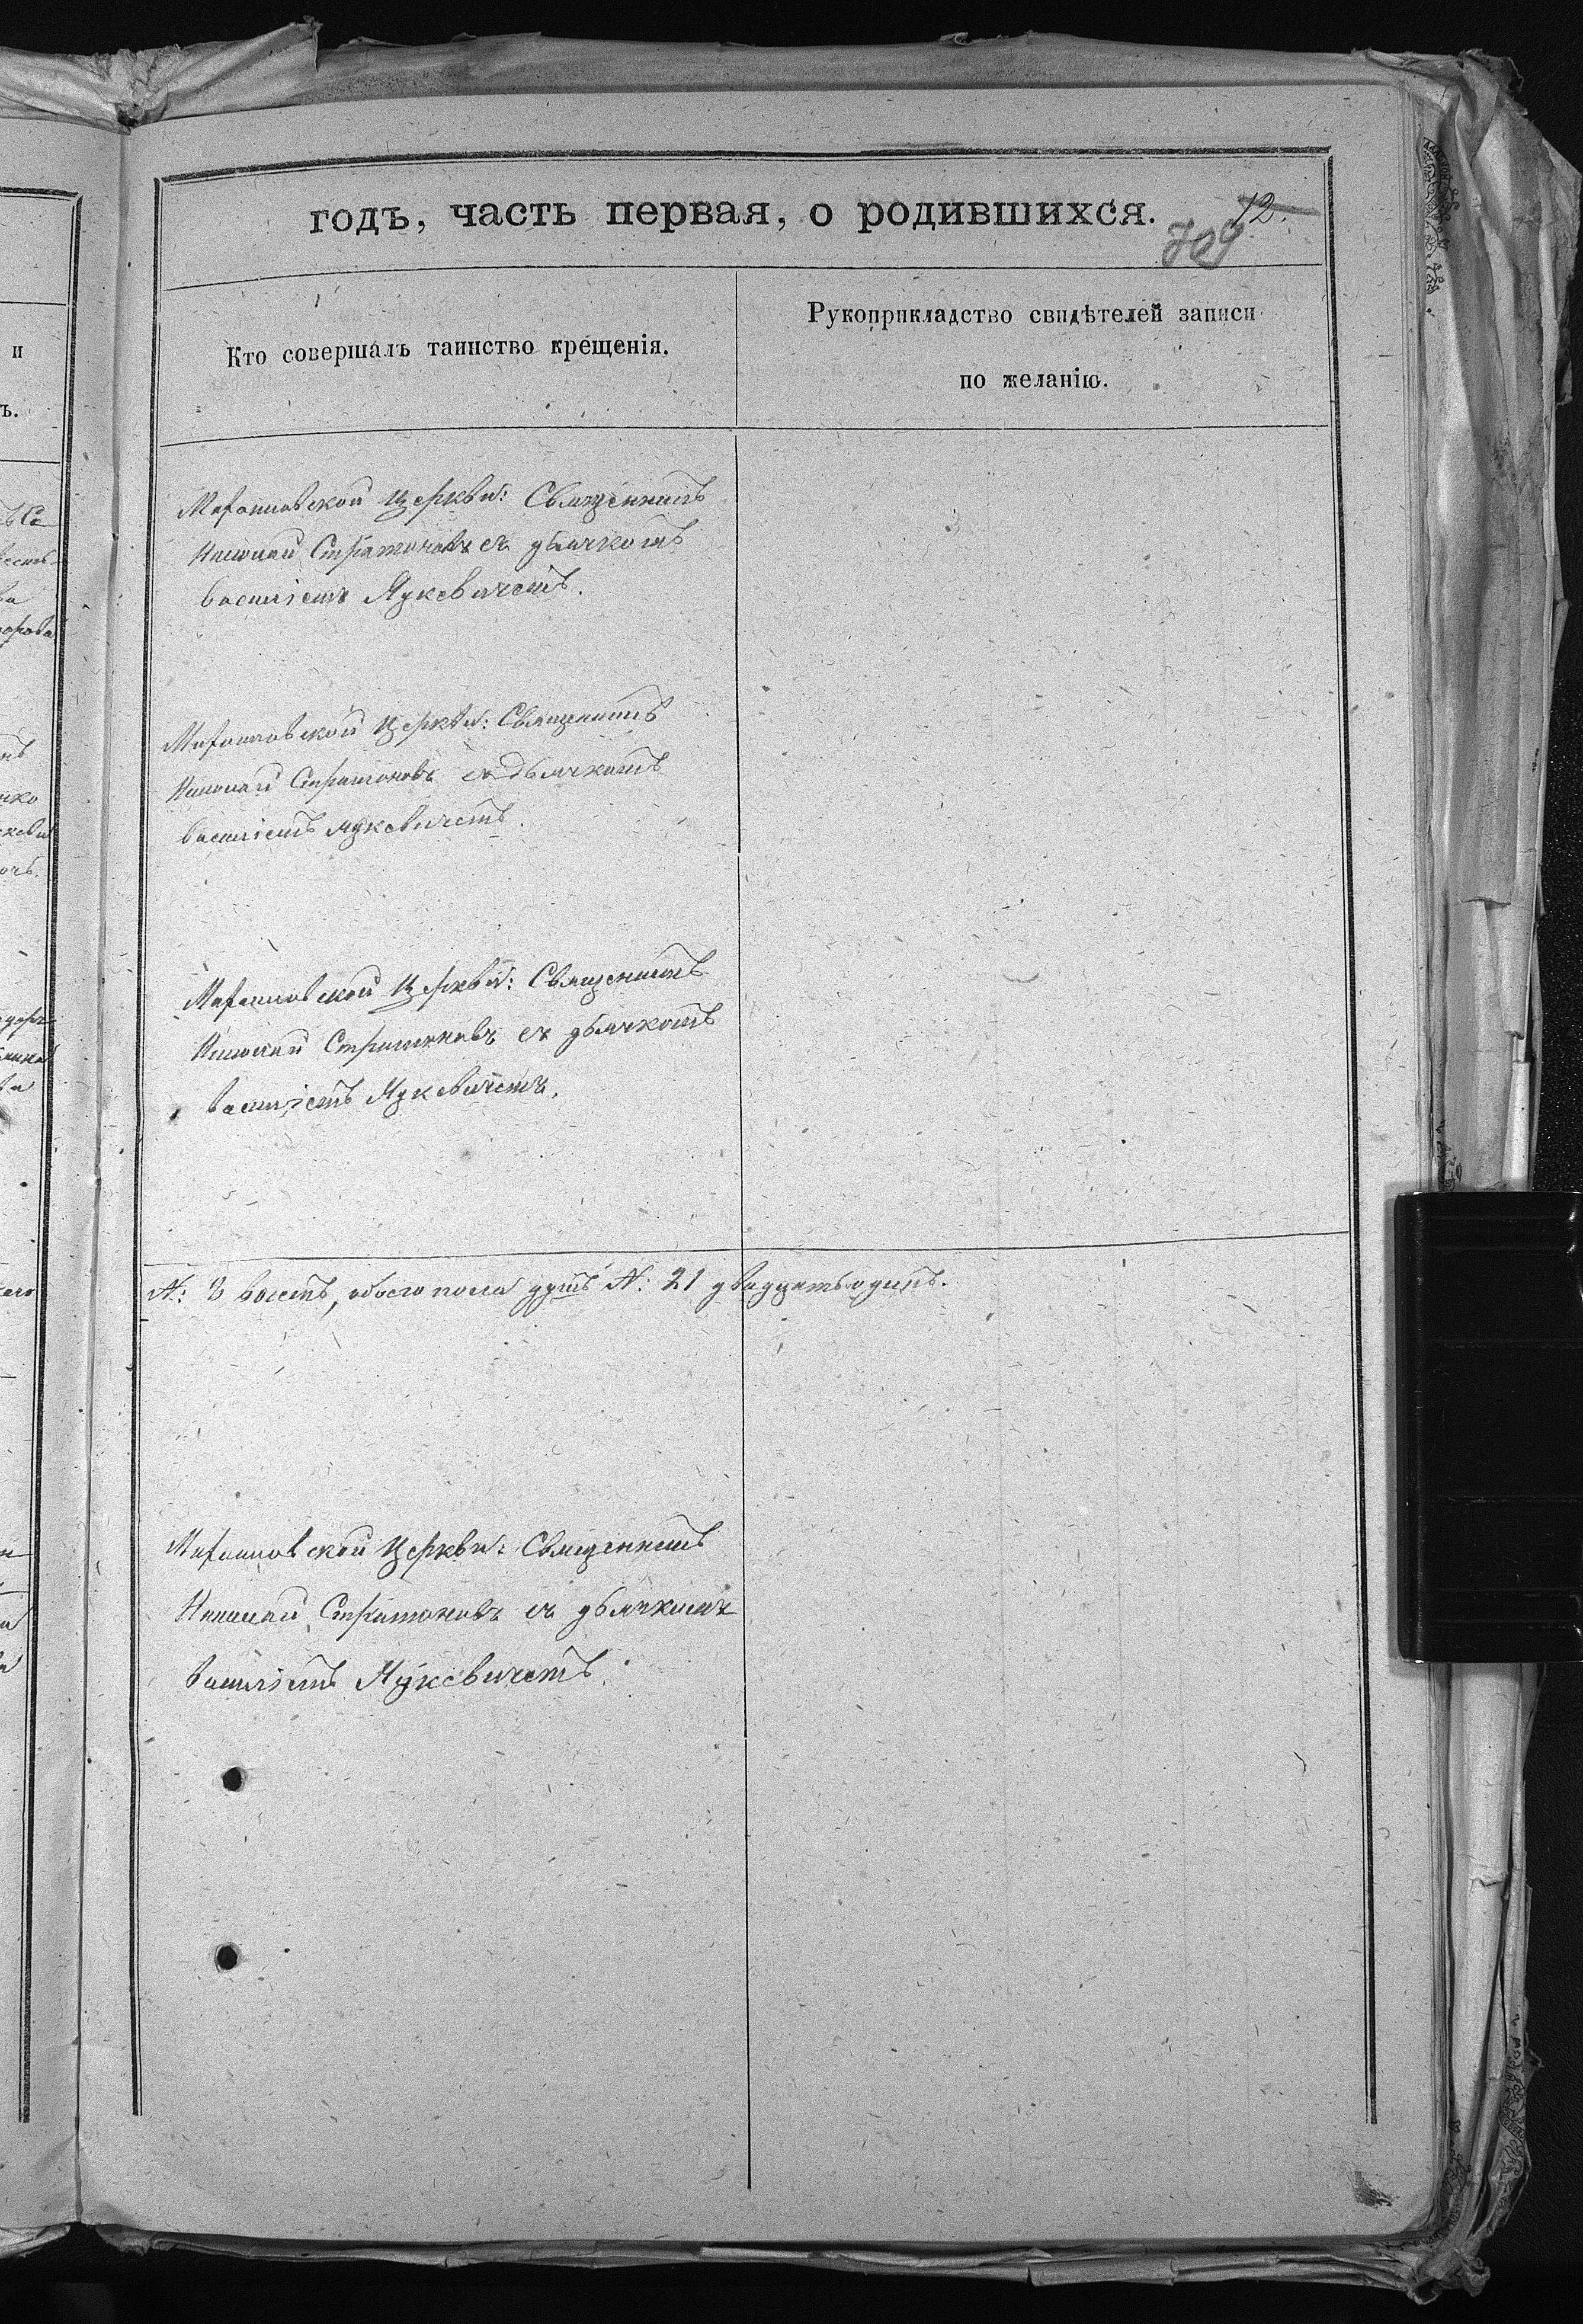 годъ, часть первая, о родившихся.
12.
709
Кто совершалъ таинство крещенія.
Рукоприкладство свидѣтелей записи
по желанію.
Церкви: Священникъ
Николай Стратоновъ съ дьячкомъ
Василіемъ Яукевичемъ.
Церкви: Священникъ
Николай Стратоновъ съ дьячкомъ
Василіемъ Яукевичемъ.
Церкви: Священникъ
Николай Стратоновъ съ дьячкомъ
Василіемъ Яукевичемъ.
№: 8 восемь, обоего пола душъ №: 21 двадцать одинъ.
Церкви: Священникъ
Николай Стратоновъ съ дьячкомъ
Василіемъ Яукевичемъ.